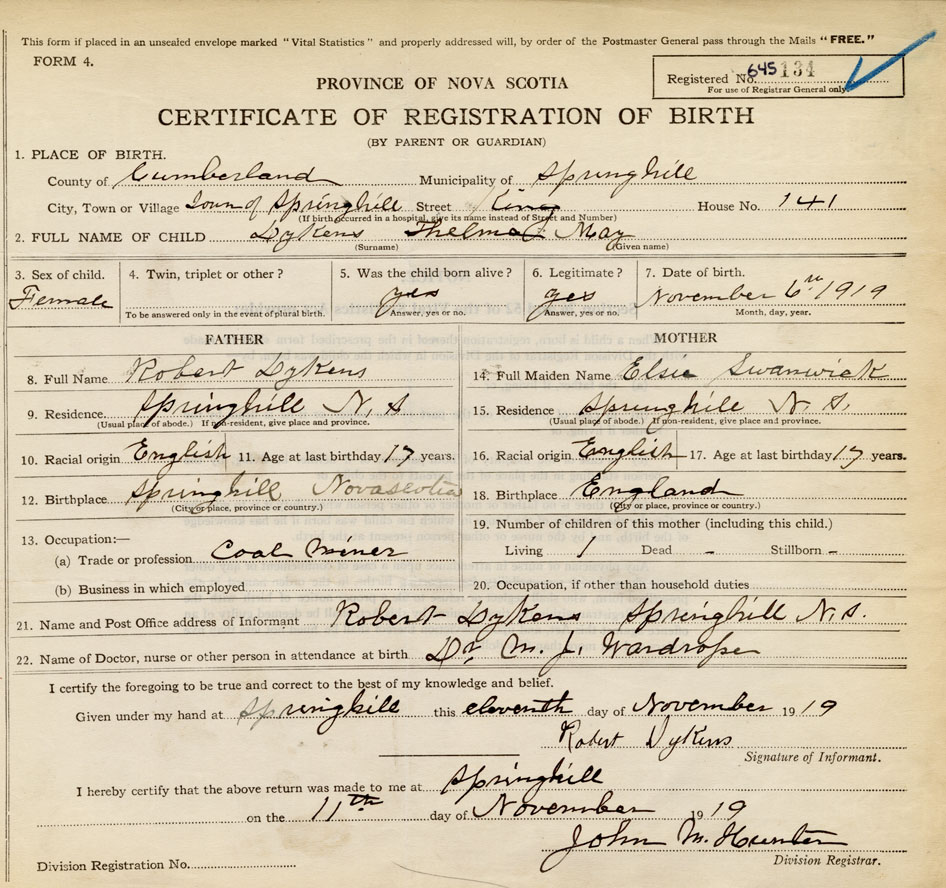 This form if placed in an unsealed envelope marked "Vital Statistics" and properly addressed will, by order of the Postmaster General pass through the Mails "FREE."
FORM 4.
Registered No. 645 134
For use of Registrar General only.
PROVINCE OF NOVA SCOTIA
CERTIFICATE OF REGISTRATION OF BIRTH
(BY PARENT OR GUARDIAN)
1. PLACE OF BIRTH.
County of Cumberland Municipality of Springhill
City, Town or Village Town of Springhill Street King House No. 141
(If birth occurred in a hospital, give its name instead of Street and Number)
2. FULL NAME OF CHILD Dykens Thelma May
(Surname) (Given name)
3. Sex of child. 4. Twin, triplet or other? 5. Was the child born alive? 6. Legitimate? 7. Date of birth.
Female yes yes November 6th 1919
To be answered only in the event of plural birth. Answer, yes or no. Answer, yes or no. Month, day, year.
FATHER
8. Full Name Robert Dykens
9. Residence. Springhill N.S
(Usual place of abode.) If non-resident, give place and province.
10. Racial origin English 11. Age at last birthday 17 years.
12. Birthplace Springhill Novascotia
(City or place, province or country.)
13. Occupation:—
(a) Trade or profession Coal Miner
(b) Business in which employed
MOTHER
14. Full Maiden Name Elsie Swanwick
15. Residence Springhill N.S.
(Usual place of abode.) If non-resident, give place and province.
16. Racial origin English 17. Age at last birthday 17 years.
18. Birthplace England
(City or place, province or country.)
19. Number of children of this mother (including this child.)
Living 1 Dead - Stillborn -
20. Occupation, if other than household duties
21. Name and Post Office address of Informant Robert Dykens Springhill N.S.
22. Name of Doctor, nurse or other person in attendance at birth Dr. M. J. Wardrope
I certify the foregoing to be true and correct to the best of my knowledge and belief.
Given under my hand at Springhill this eleventh day of November 1919
Robert Dykens
Signature of Informant.
I hereby certify that the above return was made to me at Springhill
on the 11th day of November 1919
John M. Hunter
Division Registration No.
Division Registrar.